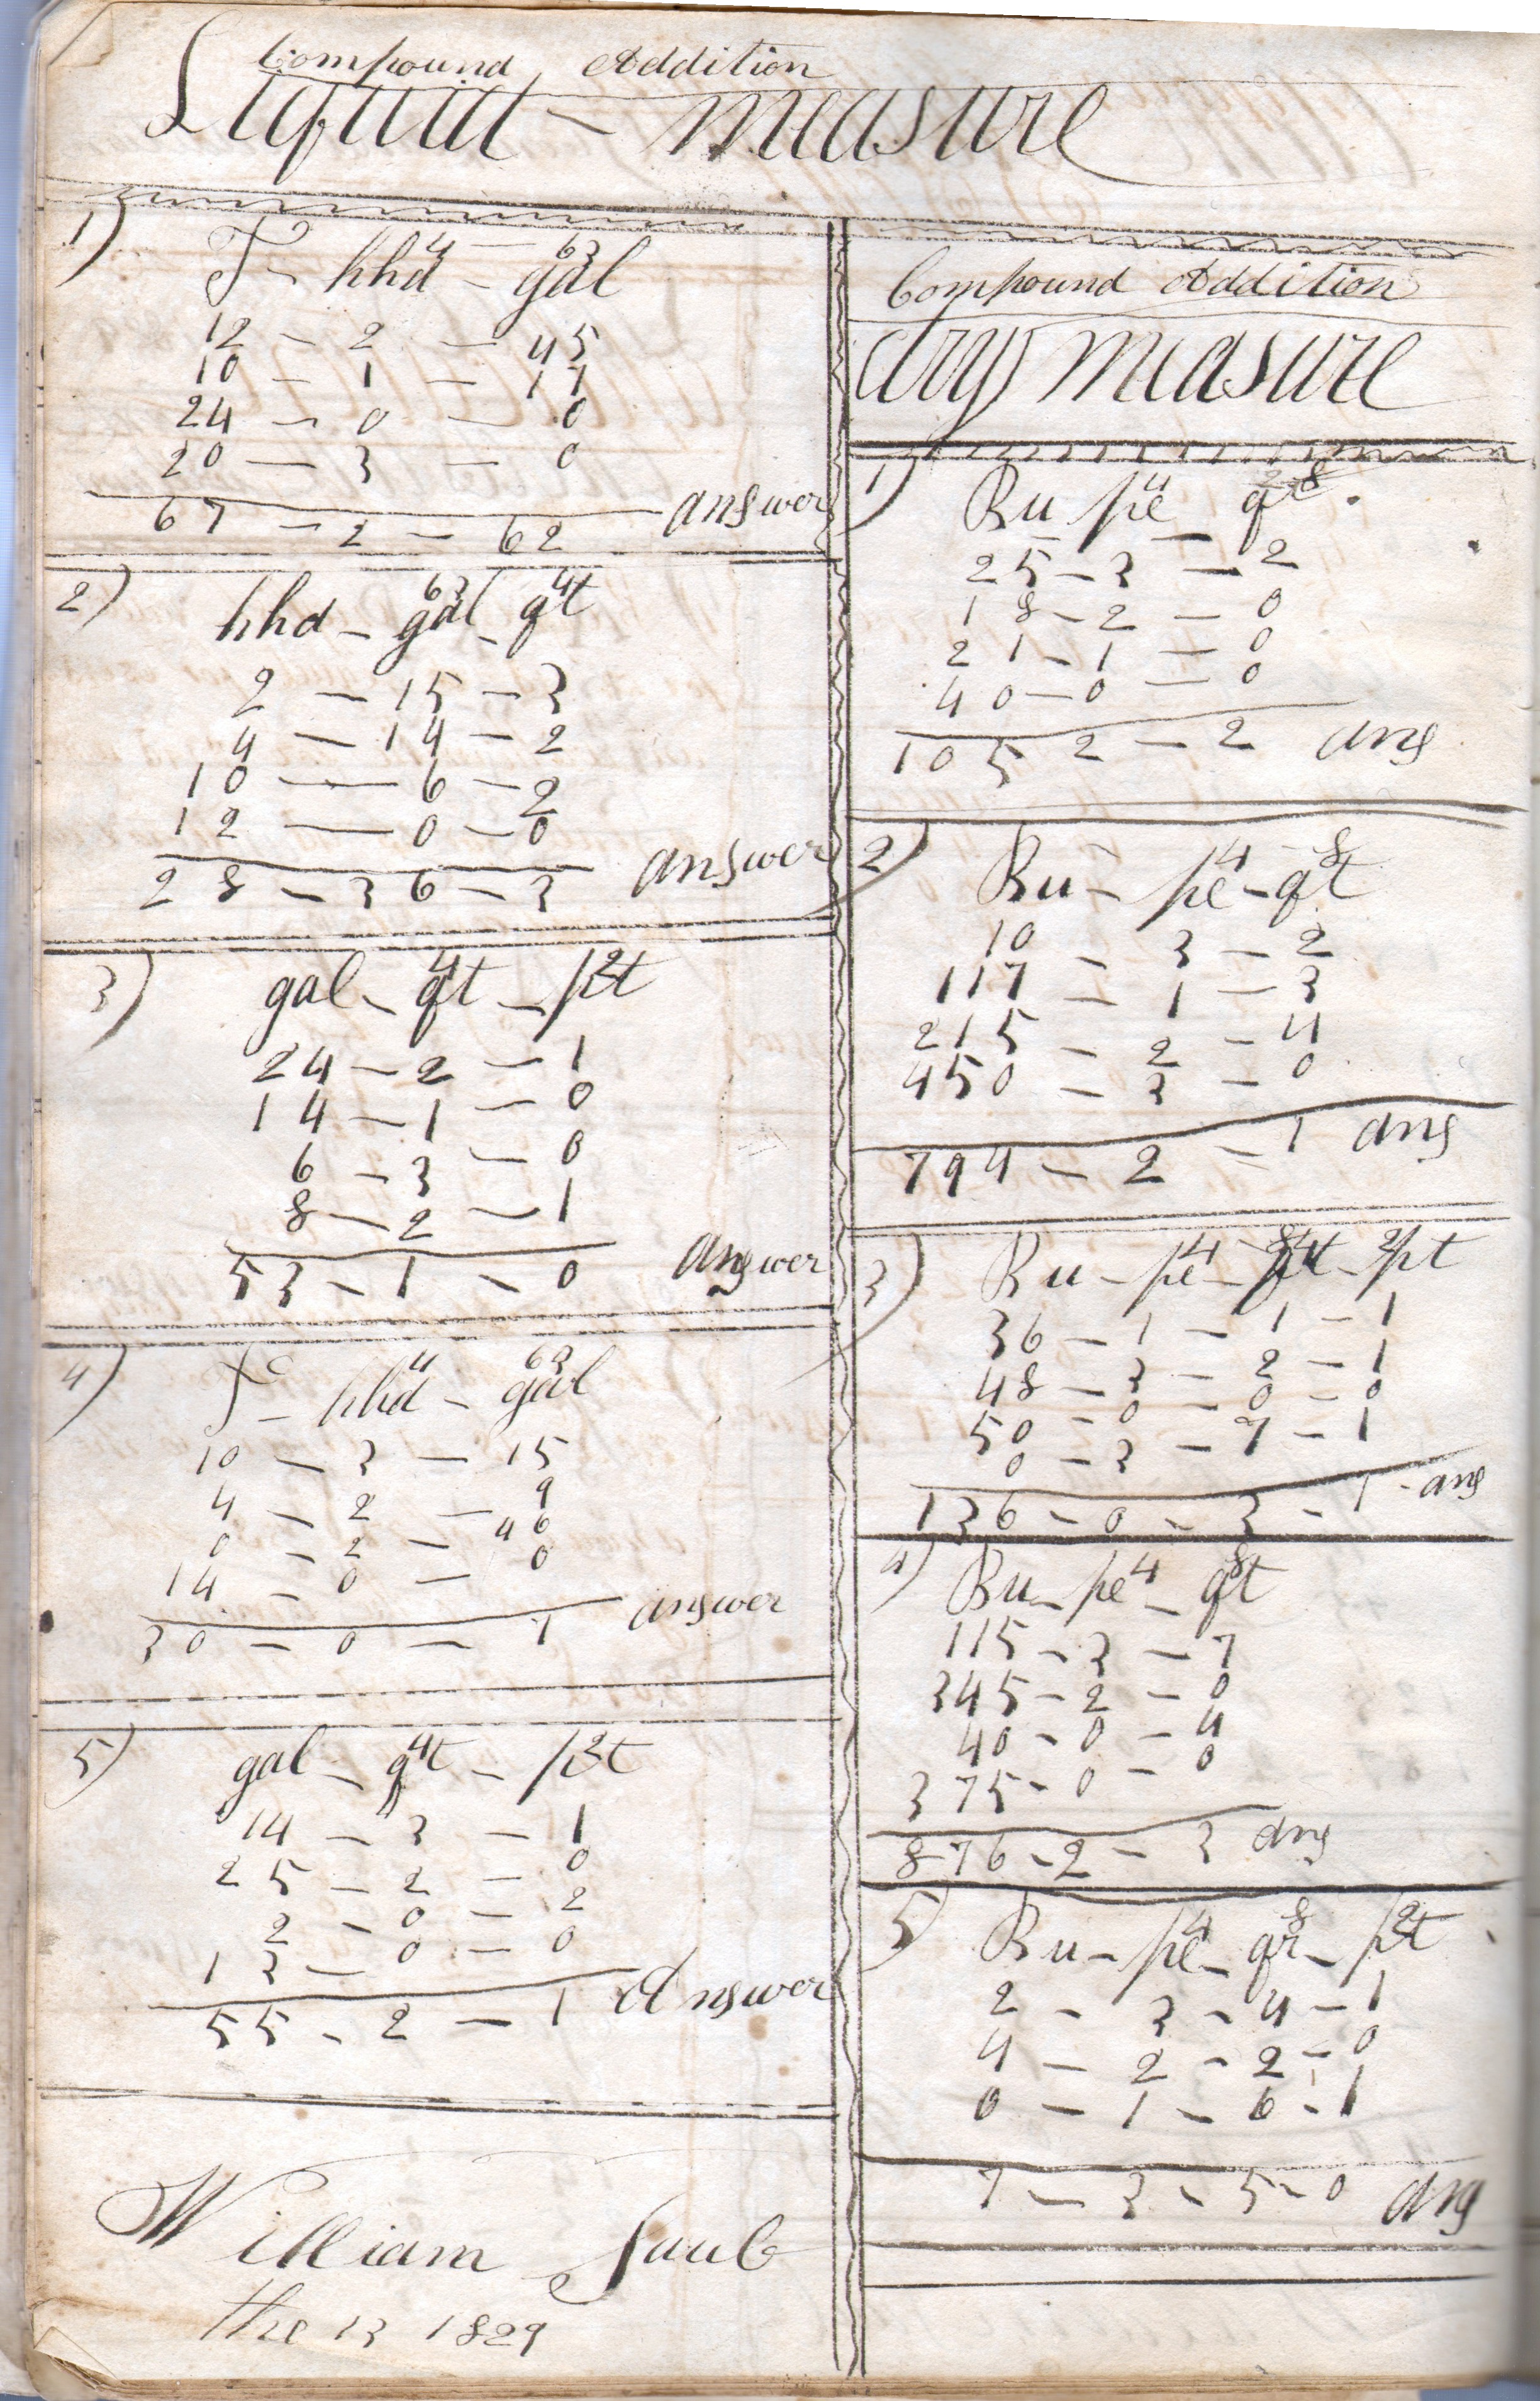 Compound Addition
Liquid - measure
1)
4 63
T - hhd - gal
12 - 2 - 45
10 - 1 - 17
24 - 0 - 0
20 - 3 - 0
67 - 2 - 62 answer
2)
63 4
hhd - gal - qt
2 - 15 - 3
4 - 14 - 2
10 - 6 - 2
12 - 0 - 0
28 - 36 - 3 answer
3)
4 2
gal - qt - pt
24 - 2 - 1
14 - 1 - 0
6 - 3 - 0
8 - 2 - 1
53 - 1 - 0 answer
4)
4 63
T - hhd - gal
10 - 3 - 15
4 - 2 - 9
0 - 2 - 46
14 - 0 - 0
30 - 0 - 7 answer
5)
4 2
gal - qt - pt
14 - 3 - 1
25 - 2 - 0
2 - 0 - 2
13 - 0 - 0
55 - 2 - 1 Answer
William
the 13 1829
Compound Addition
dry measure
1)
4 8
Bu pe qt
25 - 3 - 2
18 - 2 - 0
21 - 1 - 0
40 - 0 - 0
105 2 - 2 ans
2)
4 8
Bu - pe - qt
10 - 3 - 2
117 - 1 - 3
215 - 2 - 4
450 - 3 - 0
794 - 2 - 1 ans
3)
4 8 2
Bu - pe - qt - pt
36 - 1 - 1 - 1
48 - 3 - 2 - 1
50 - 0 - 0 - 0
0 - 3 - 7 - 1
136 - 0 - 3 - 1 - ans
4)
4 8
Bu - pe - qt
115 - 3 - 7
345 - 2 - 0
40 - 0 - 4
375 - 0 - 0
876 - 2 - 3 ans
5)
4 8 2
Bu - pe - qr - pt
2 - 3 - 4 - 1
4 - 2 - 2 - 0
0 - 1 - 6 - 1
7 - 3 - 5 - 0 ans